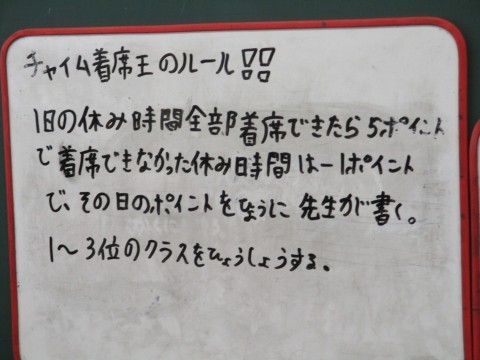 チャイム着席王のルール!!
1日の休み時間全部着席できたら5ポイント
で着席できなかった休み時間は-1ポイント
で、その日のポイントをひょうに先生が書く。
1～3位のクラスをひょうしょうする。